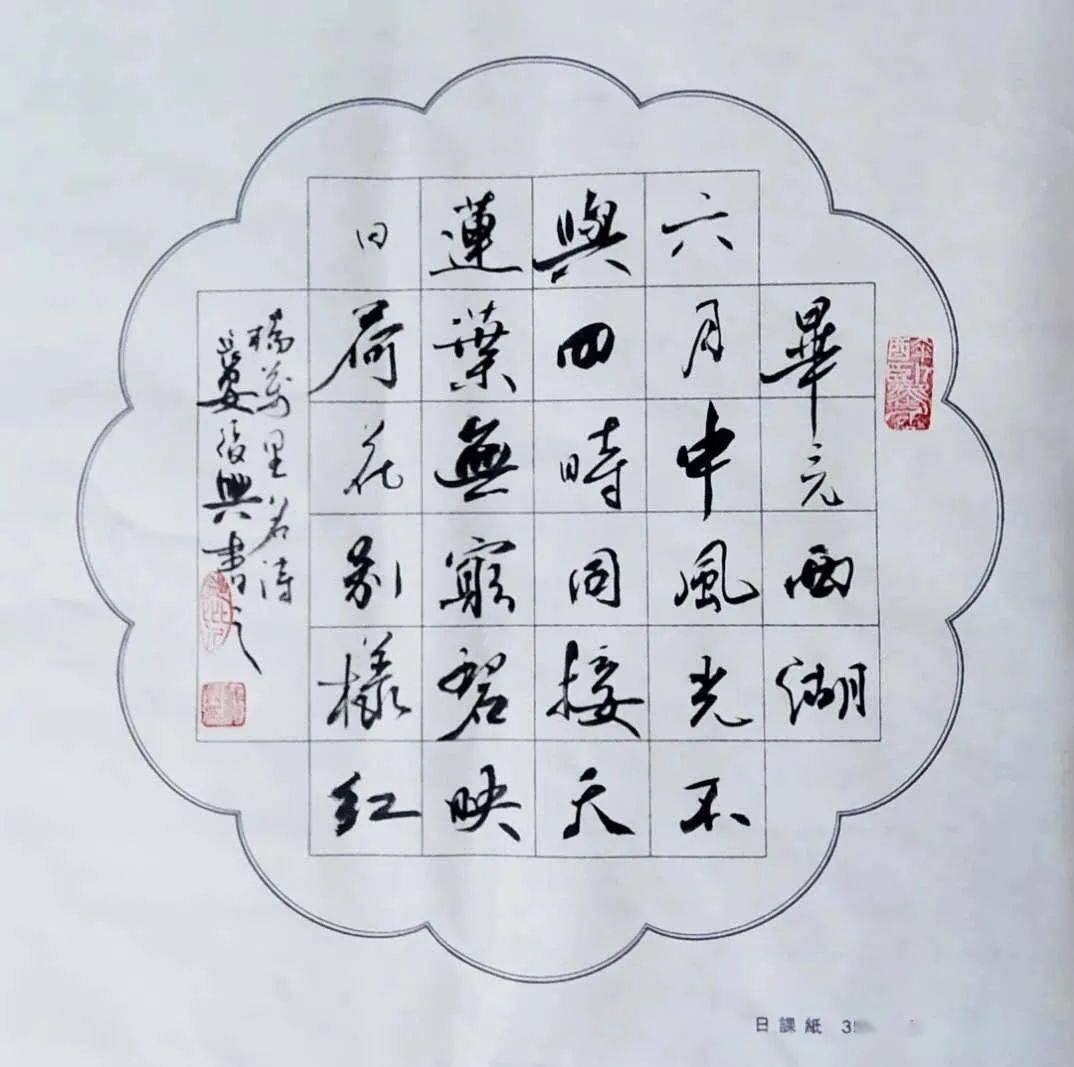 畢竟西湖
六月中風光不
與四時同接天
蓮葉無窮碧映
日荷花別樣紅
楊萬里名詩
興書
日課紙